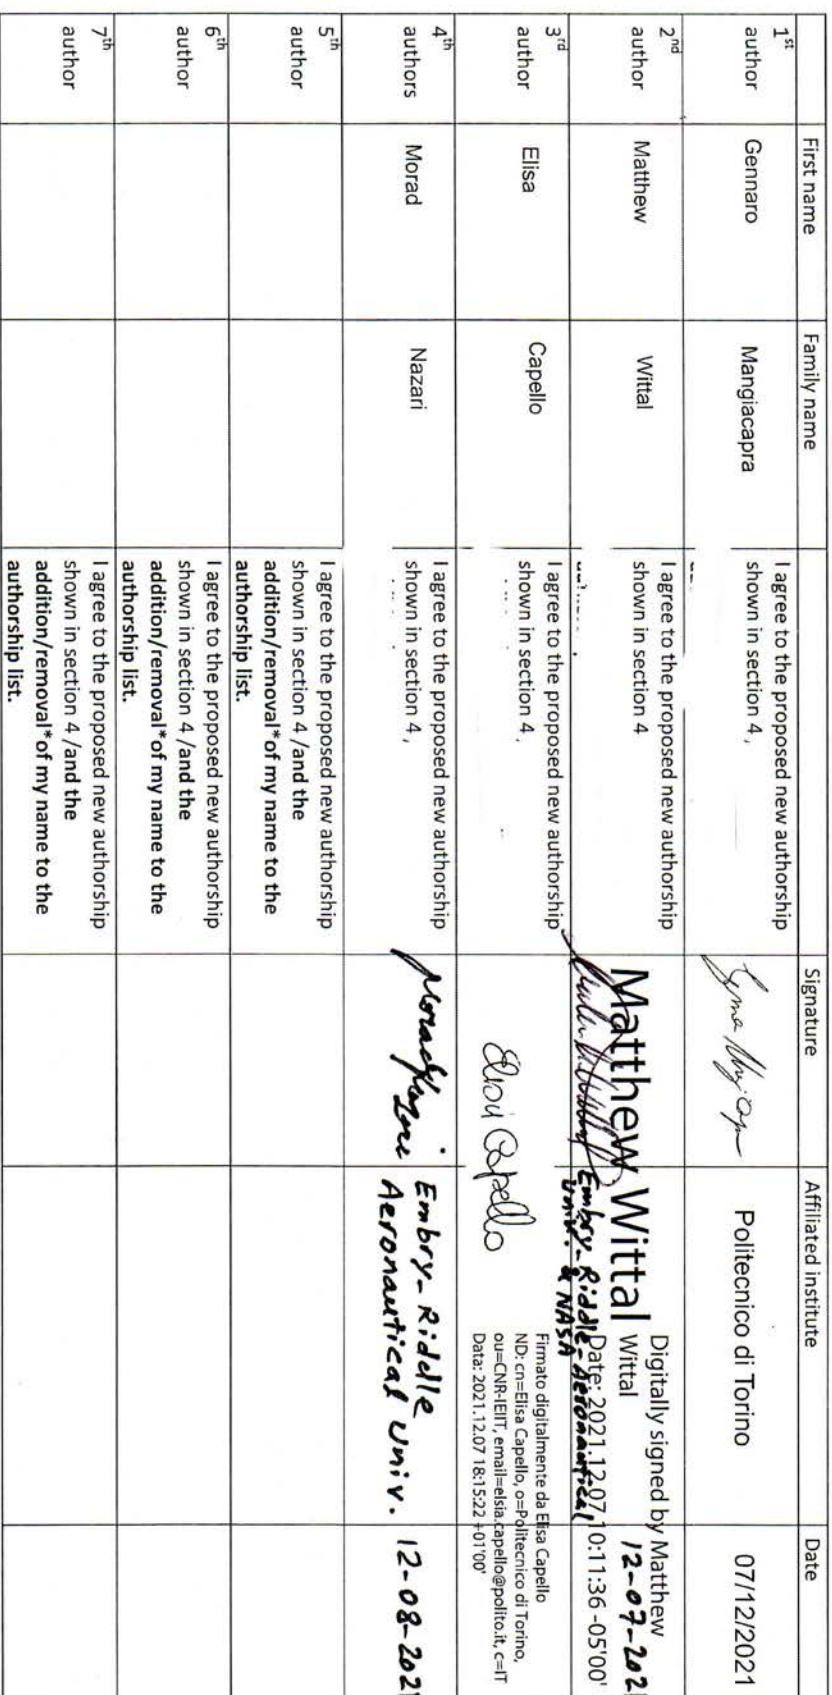 First name
Family name
Signature
Affiliated institute
Date
1st
author
Gennaro
Mangiacapra
I agree to the proposed new authorship
shown in section 4 ,
Politecnico di Torino
07/12/2021
2nd
author
Matthew
Wittal
I agree to the proposed new authorship
shown in section 4
Matthew Wittal
Digitally signed by Matthew
Wittal
Date: 2021.12.07 10:11:36 -05'00'
Embry-Riddle-Aeronautical
Univ. & NASA
12-07-2021
3rd
author
Elisa
Capello
I agree to the proposed new authorship
shown in section 4 ,
Elisa Capello
Firmato digitalmente da Elisa Capello
ND: cn=Elisa Capello, o=Politecnico di Torino,
ou=CNR-IEIIT, email=elsia.capello@polito.it, c=IT
Data: 2021.12.07 18:15:22 +01'00'
4th
authors
Morad
Nazari
I agree to the proposed new authorship
shown in section 4 ,
Morad Nazari
Embry-Riddle
Aeronautical Univ.
12-08-2021
5th
author
I agree to the proposed new authorship
shown in section 4 /and the
addition/removal*of my name to the
authorship list.
6th
author
I agree to the proposed new authorship
shown in section 4 /and the
addition/removal*of my name to the
authorship list.
7th
author
I agree to the proposed new authorship
shown in section 4 /and the
addition/removal*of my name to the
authorship list.